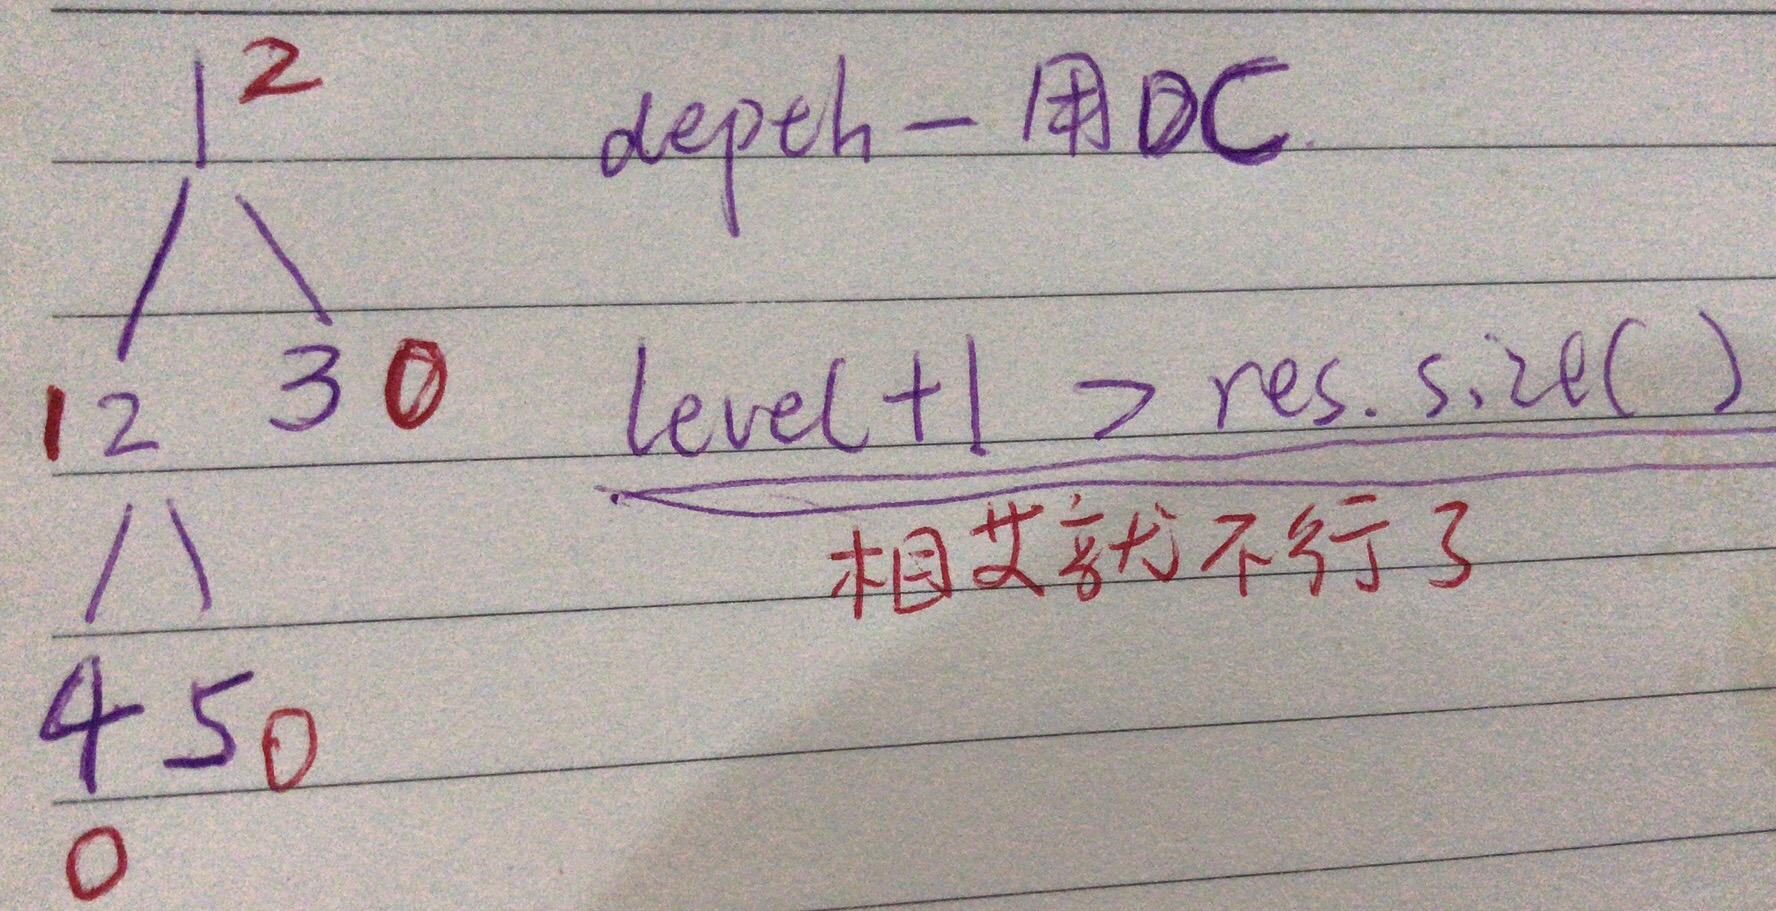 1 2
depth - 用DC
1 2 3 0
level+1 > res.size()
相艾就不行了
4 5 0
0